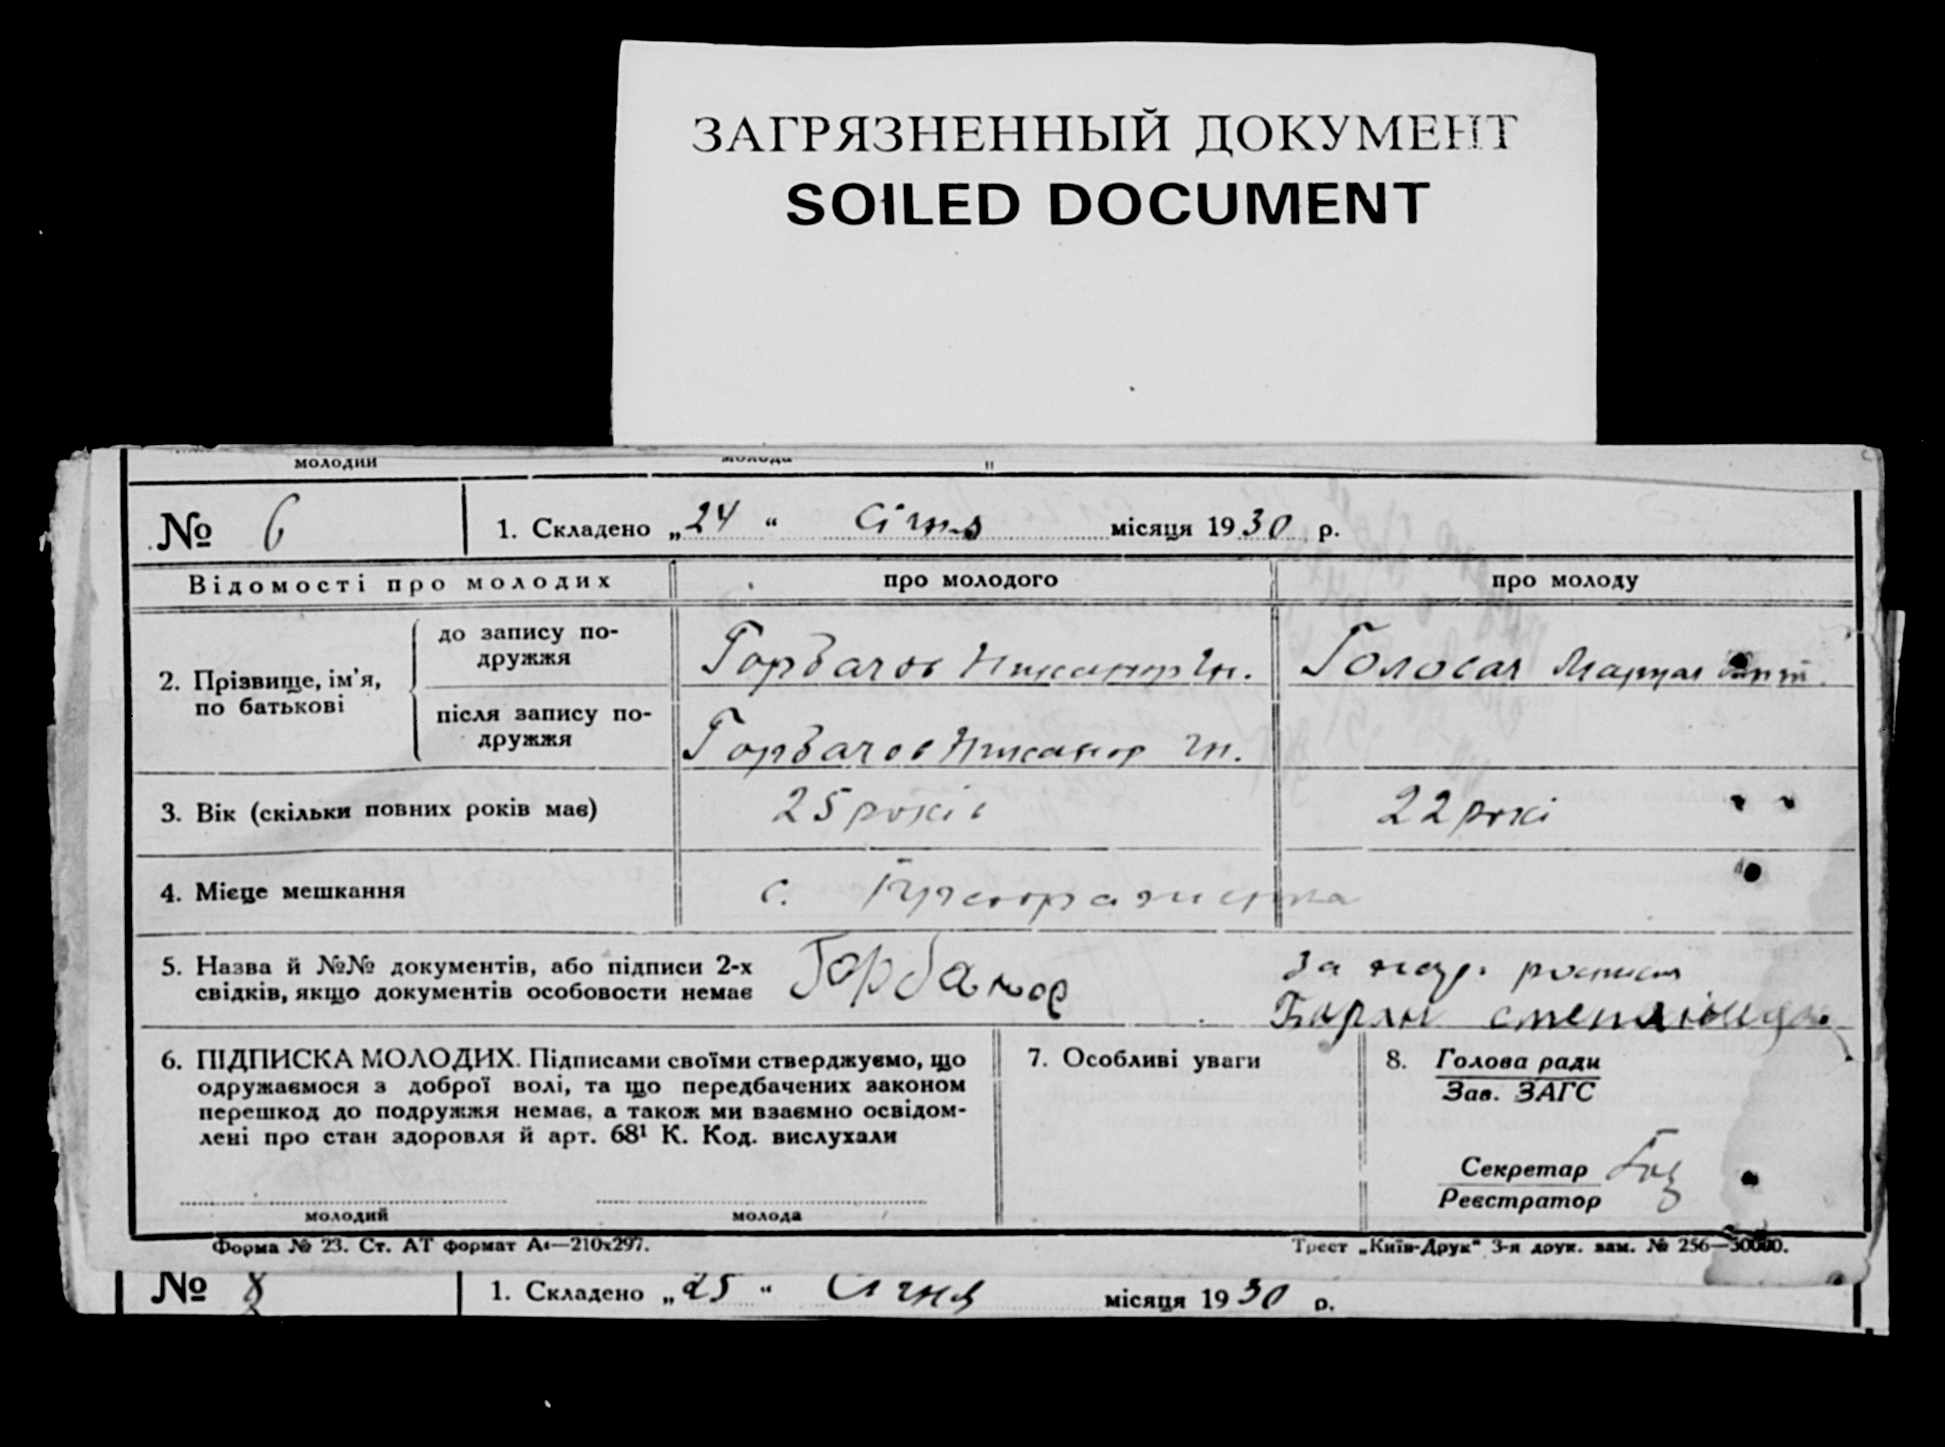 ЗАГРЯЗНЕННЫЙ ДОКУМЕНТ
SOILED DOCUMENT
молодий молода
№ 6 1. Складено „24“ Січня місяця 1930 р.
Відомості про молодих про молодого про молоду
2. Прізвище, ім'я, по батькові
до запису подружжя Горбачов Никанор Ів. Голосая
після запису подружжя Горбачов Никанор
3. Вік (скільки повних років має) 25 років 22 рокі
4. Місце мешкання с.
5. Назва й №№ документів, або підписи 2-х За росписал
свідків, якщо документів особовости немає Баран
6. ПІДПИСКА МОЛОДИХ. Підписами своїми стверджуємо, що
одружаємося з доброї волі, та що передбачених законом
перешкод до подружжя немає, а також ми взаємно освідом-
лені про стан здоровля й арт. 68¹ К. Код. вислухали
молодий молода
7. Особливі уваги
8. Голова ради
Зав. ЗАГС
Секретар
Реєстратор
Форма № 23. Ст. АТ формат А4—210х297. Трест „Київ-Друк“ 3-я друк. зам. № 256—50000.
№ 8 1. Складено „25“ Січня місяця 1930 р.